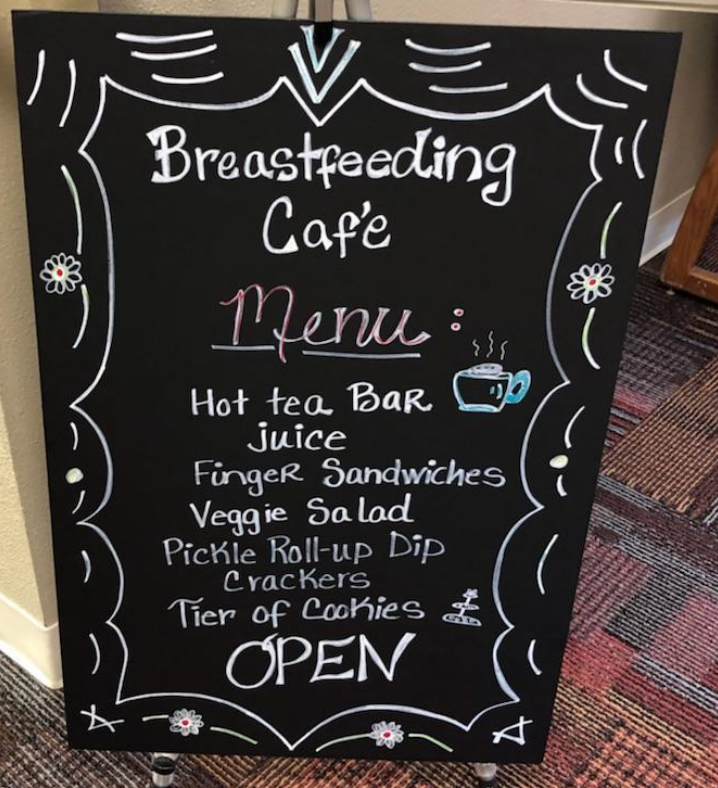 Breastfeeding
Cafe'
Menu:
Hot tea BaR
juice
FingeR Sandwiches
Veggie Salad
Pickle Roll-up Dip
Crackers
Tier of Cookies
OPEN